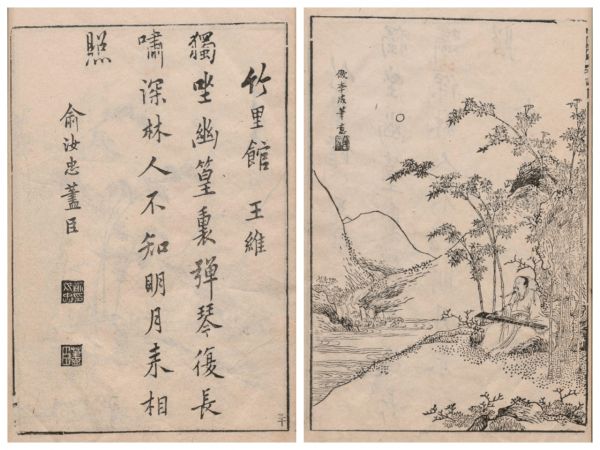 竹里館 王維
獨坐幽篁裏彈琴復長
嘯深林人不知明月来相
照
俞汝忠藎臣
三十
倣李成筆意